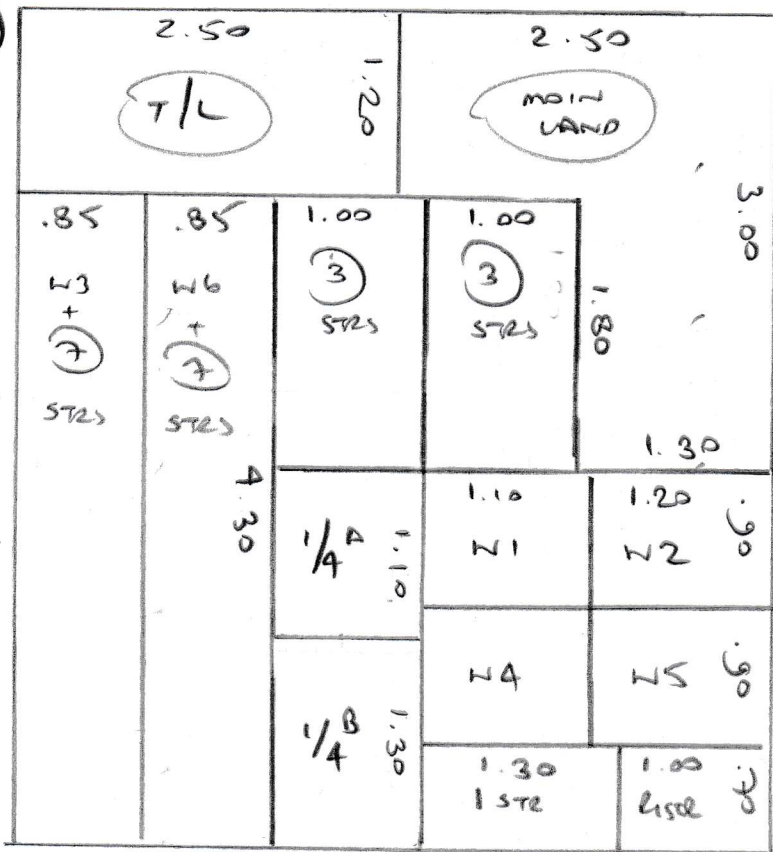 2.50
T/L
1.20
2.50
MAIN
LAND
3.00
.85
W3
+
7
STRS
.85
W6
+
7
STRS
4.30
1.00
3
STRS
1.00
3
STRS
1.80
1.30
1/4 A
1.10
1.10
W1
1.20
W2
.90
W4
W5
.90
1/4 B
1.30
1.30
1 STR
1.00
RISER
.70